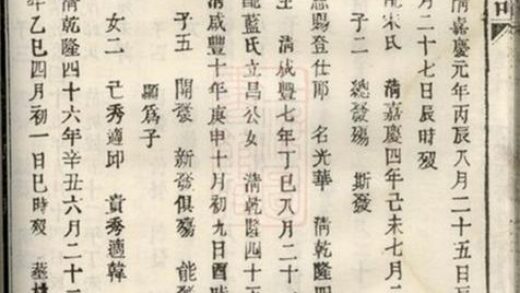 清嘉慶元年丙辰八月二十五日辰
月二十七日辰時歿
配宋氏 清嘉慶四年己未七月二
子二 總發殤 斯發
恩賜登仕郎 名光華 清乾隆四
清咸豐七年丁巳八月二十
配藍氏立昌公女 清乾隆四十五
清咸豐十年庚申十月初九日酉時
子五 開發 新發俱殤 能發
顯爲子
女二 己秀適邱 貴秀適韓
清乾隆四十六年辛丑六月二十二
年乙巳四月初一日巳時歿